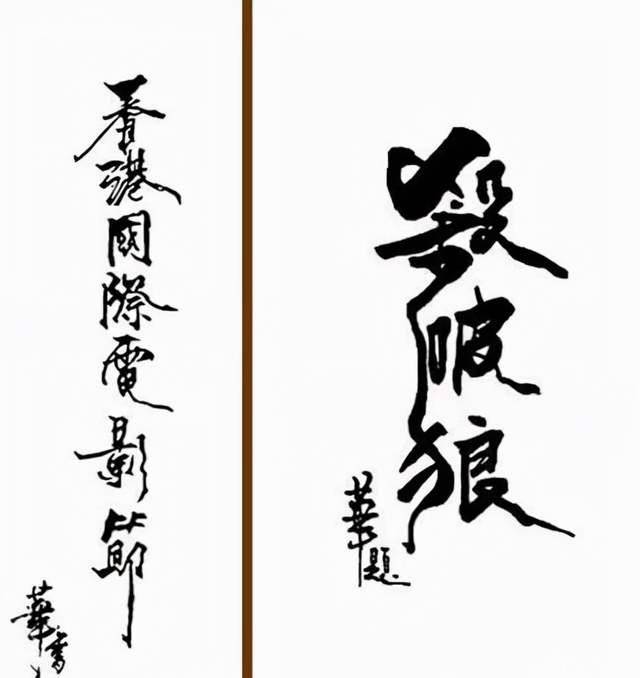 香港國際電影節
華書
殺破狼
華題